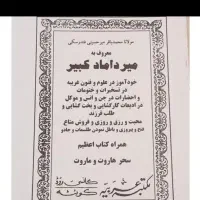 مولانا محمدباقر میرحسینی فندرسکی
معروف به
میرداماد کبیر
خودآموز در علوم و فنون غریبه
در تسخیرات و ختومات
و احضارات در جن و انس و موکل
در ادعیات کارگشایی و بخت گشایی و
طلب فرزند
محبت و رزق و روزی و فروش متاع
فتح و پیروزی و باطل نمودن طلسمات و جادو
همراه کتاب اعظیم
سحر هاروت و ماروت